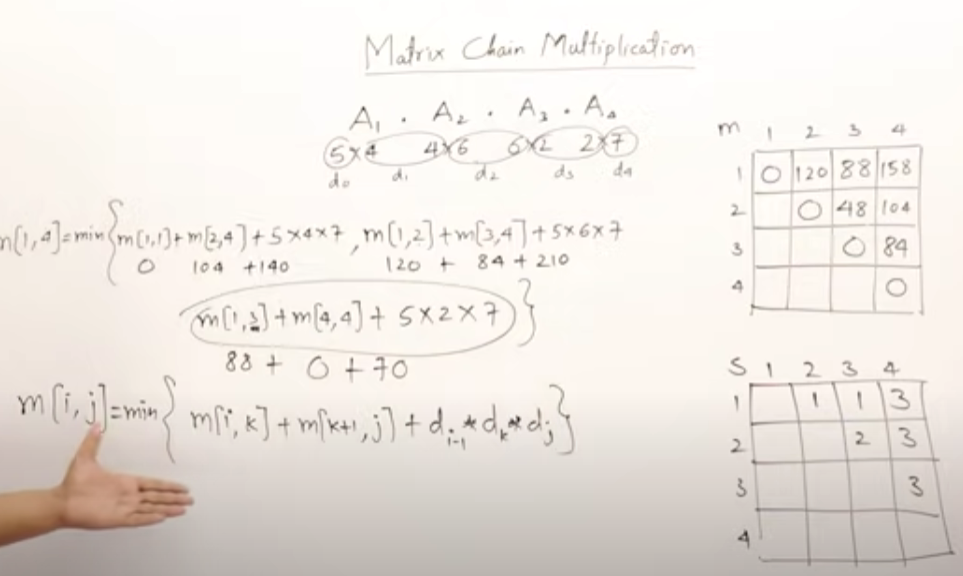 Matrix Chain Multiplication
A₁ . A₂ . A₃ . A₄
5×4 4×6 6×2 2×7
d₀ d₁ d₂ d₃ d₄
m[1,4]=min{m[1,1]+m[2,4]+5×4×7, m[1,2]+m[3,4]+5×6×7
0 104 +140 120 + 84+210
m[1,3]+m[4,4]+5×2×7}
88+ 0+70
m[i,j]=min{m[i,k]+m[k+1,j]+dᵢ₋₁*dₖ*dⱼ}
m 1 2 3 4
1 0 120 88 158
2 0 48 104
3 0 84
4 0
S 1 2 3 4
1 1 1 3
2 2 3
3 3
4